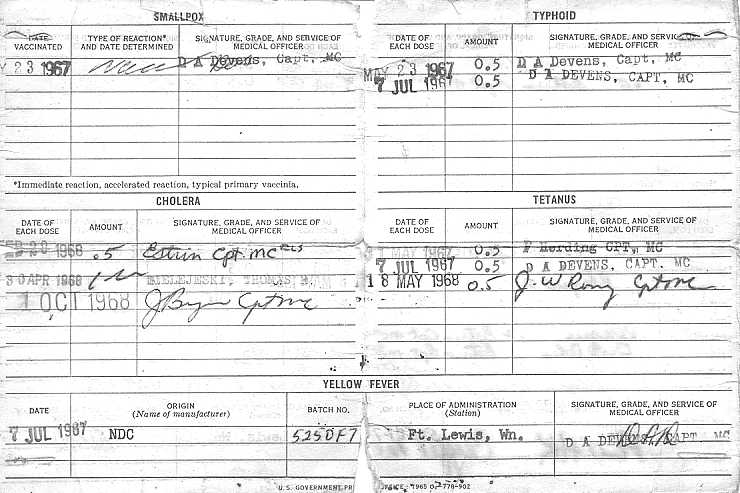 SMALLPOX
DATE VACCINATED
TYPE OF REACTION* AND DATE DETERMINED
SIGNATURE, GRADE, AND SERVICE OF MEDICAL OFFICER
23 1967
D A Devens, Capt, MC
*Immediate reaction, accelerated reaction, typical primary vaccinia.
TYPHOID
DATE OF EACH DOSE
AMOUNT
SIGNATURE, GRADE, AND SERVICE OF MEDICAL OFFICER
MAY 23 1967 0.5 D A Devens, Capt, MC
7 JUL 1967 0.5 D A DEVENS, CAPT, MC
CHOLERA
DATE OF EACH DOSE
AMOUNT
SIGNATURE, GRADE, AND SERVICE OF MEDICAL OFFICER
20 1968 .5 Estrin Cpt. MC
30 APR 1968
1 OCT 1968
TETANUS
DATE OF EACH DOSE
AMOUNT
SIGNATURE, GRADE, AND SERVICE OF MEDICAL OFFICER
MAY 1967 0.5 Herding CPT, MC
7 JUL 1967 0.5 D A DEVENS, CAPT. MC
18 MAY 1968 0.5 J. W
YELLOW FEVER
DATE
ORIGIN
(Name of manufacturer)
BATCH NO.
PLACE OF ADMINISTRATION
(Station)
SIGNATURE, GRADE, AND SERVICE OF MEDICAL OFFICER
7 JUL 1967 NDC 5250F7 Ft. Lewis, Wn. D A DEVENS, CAPT. MC
U.S. GOVERNMENT 1965 O-778-902